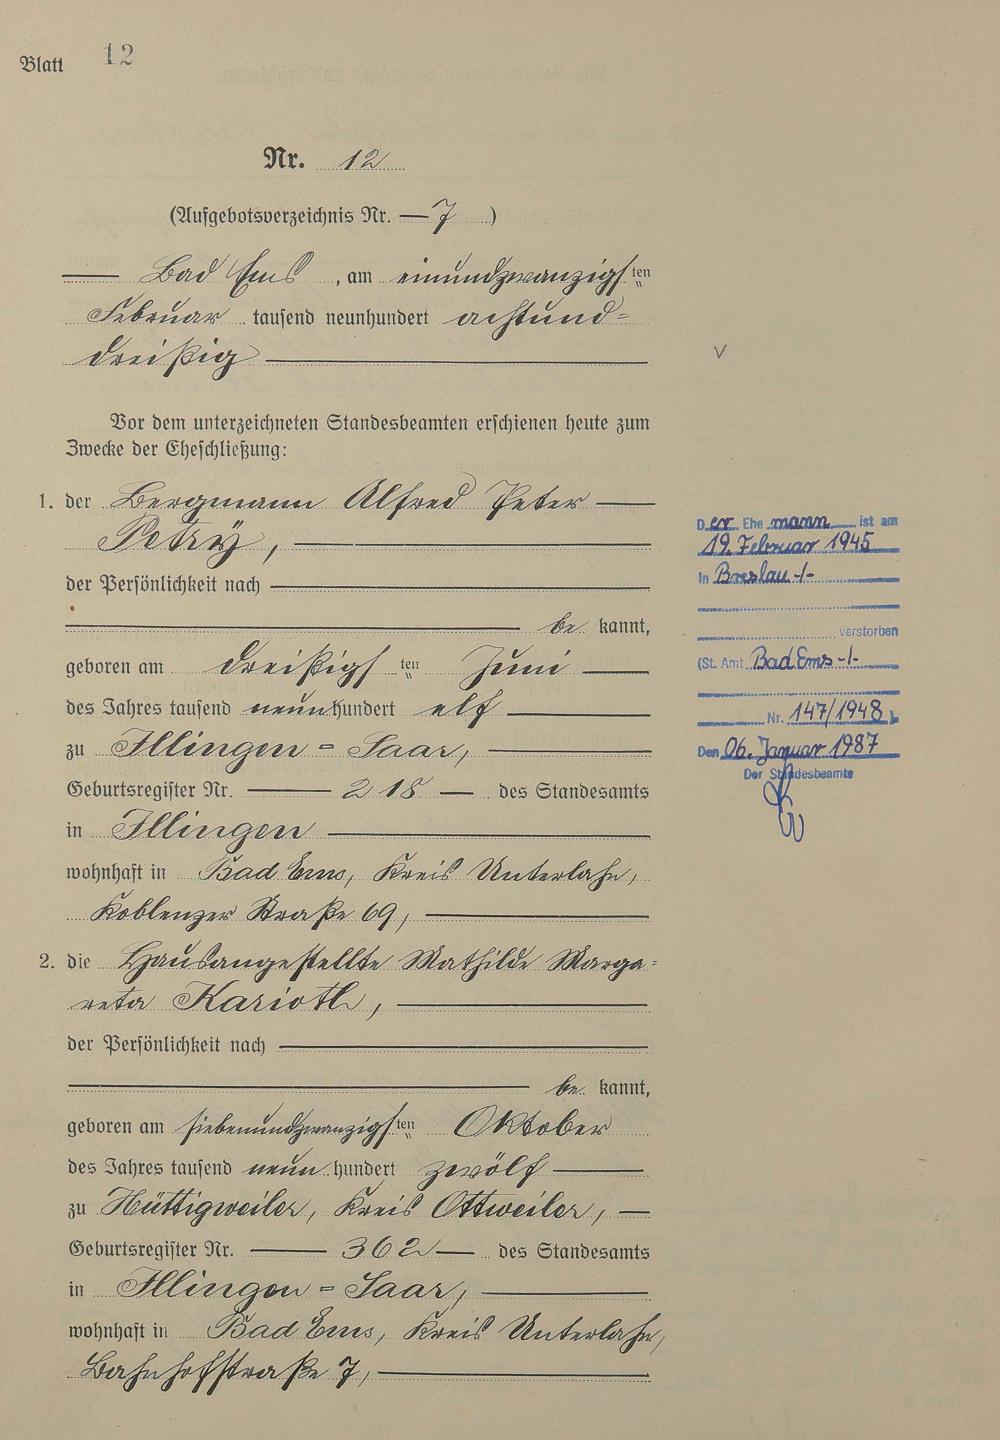 Blatt 12
Nr. 12
(Aufgebotsverzeichnis Nr. — 7 )
Bad Ems, am einundzwanzigsten
Februar tausend neunhundert achtund=
dreißig
Vor dem unterzeichneten Standesbeamten erschienen heute zum
Zwecke der Eheschließung:
1. der Bergmann Alfred Peter
Petry,
der Persönlichkeit nach
be kannt,
geboren am dreißigsten Juni
des Jahres tausend neunhundert elf
zu Illingen = Saar,
Geburtsregister Nr. — 218 — des Standesamts
in Illingen
wohnhaft in Bad Ems, Kreis Unterlahn,
Koblenzer Straße 69,
2. die Hausangestellte Mathilde Marga=
reta Karioth,
der Persönlichkeit nach
be kannt,
geboren am siebenundzwanzigsten Oktober
des Jahres tausend neunhundert zwölf
zu Hüttigweiler, Kreis Ottweiler, —
Geburtsregister Nr. — 362 — des Standesamts
in Illingen = Saar,
wohnhaft in Bad Ems, Kreis Unterlahn,
Bahnhofstraße 7,
Der Ehemann ist am
19. Februar 1945
In Breslau -/-
verstorben
(St. Amt Bad Ems -/-
Nr. 147/1948)
Den 06. Januar 1987
Der Standesbeamte